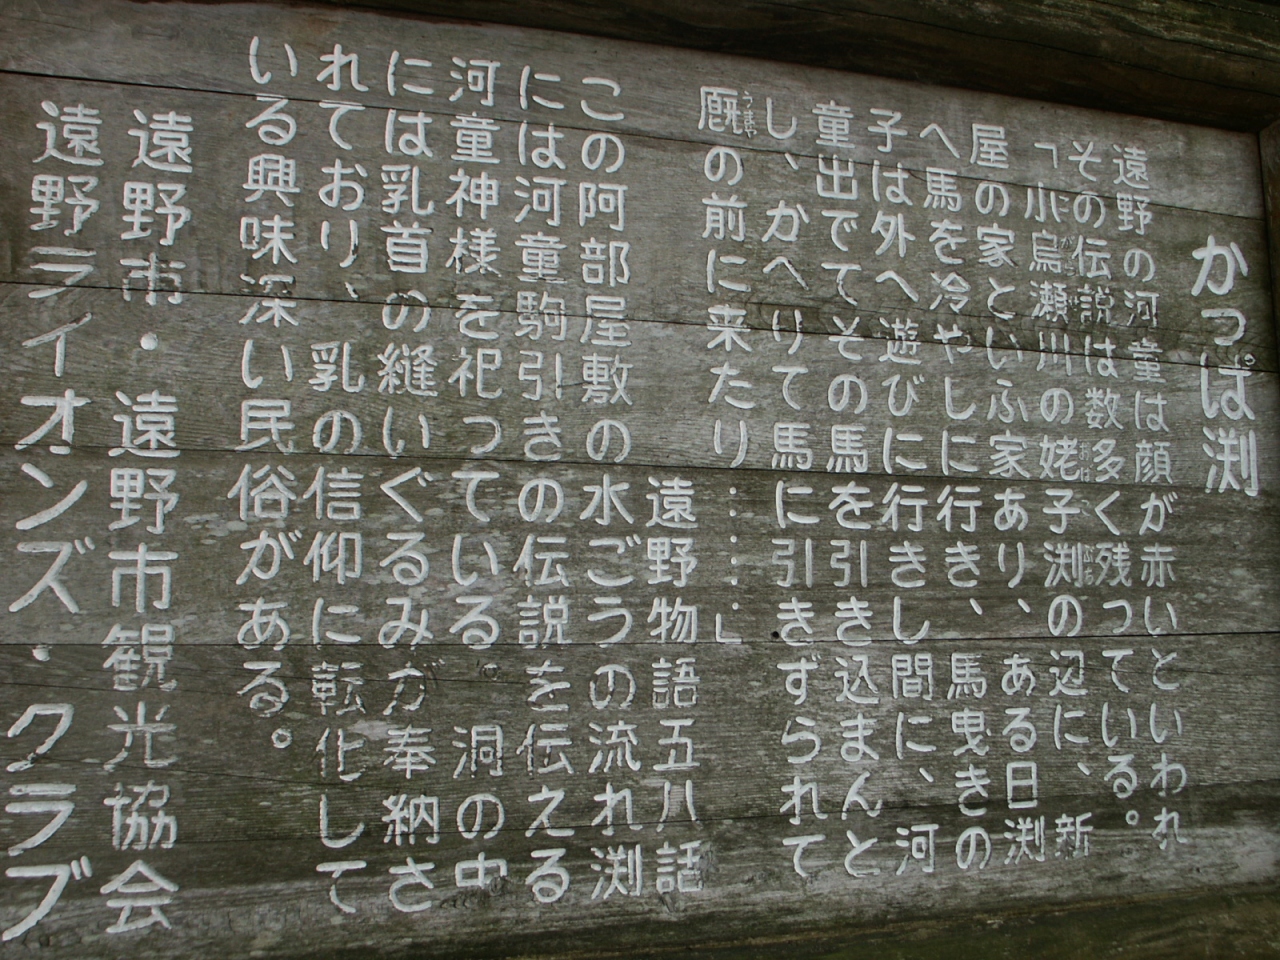 かっぱ渕
遠野の河童は顔が赤いといわれ
その伝説は数多く残っている。
「小烏瀬川の姥子渕の辺に、新
屋の家といふ家あり、ある日渕
へ馬を冷やしに行き、馬曳きの
子は外へ遊びに行きし間に、河
童出でてその馬を引き込まんと
し、かへりて馬に引きずられて
厩の前に来たり……」
遠野物語五八話
この阿部屋敷の水ごうの流れ渕
には河童駒引きの伝説を伝える
河童神様を祀っている。洞の中
には乳首の縫いぐるみが奉納さ
れており、乳の信仰に転化して
いる興味深い民俗がある。
遠野市・遠野市観光協会
遠野ライオンズ・クラブ